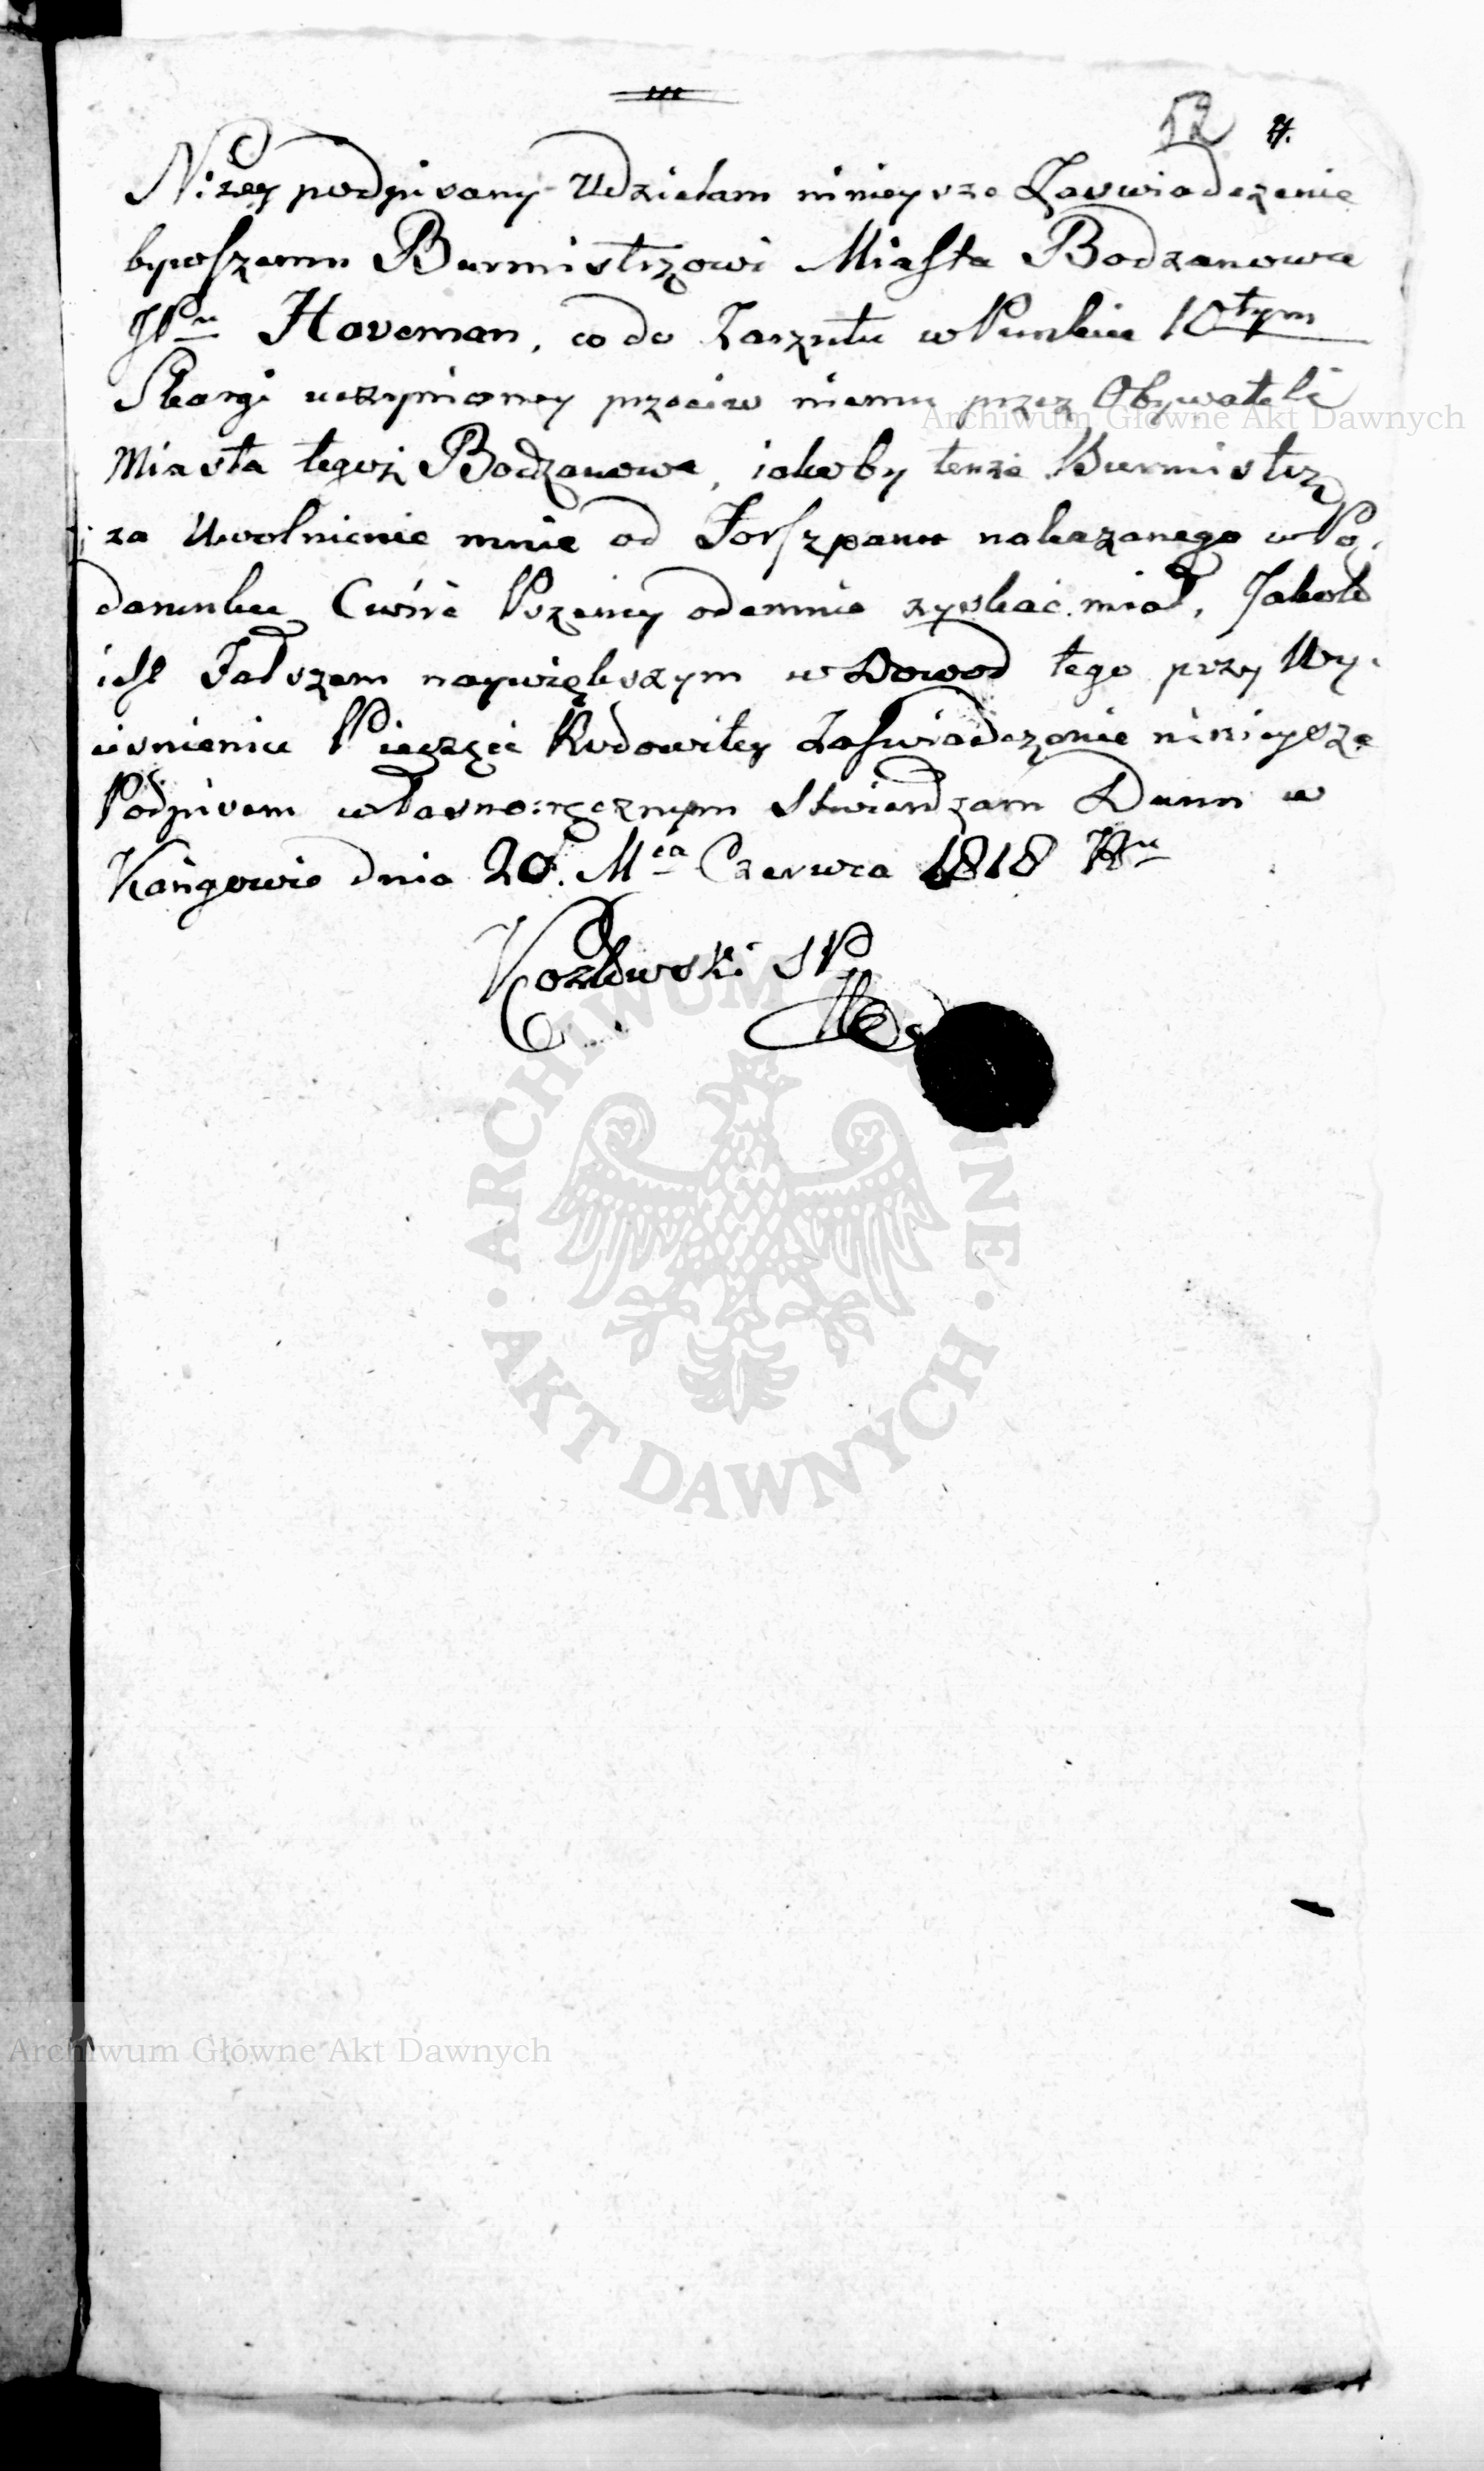 Niżey podpisany Udzielam ninieysze Zaswiadczenie
bywszemu Burmistrzowi Miasta Bodzanowa
JPu Haveman, co do Zarzutu w Punkcie 10tym
Skargi uczynioney przeciw niemu przez Obywateli
Miasta tegoż Bodzanowa, iakoby tenże Burmistrz
za Uwolnienie mnie od Forszpanu nakazanego w Po-
darunku Cwirć Pszenicy odemnie zyskać miał, Jako
iest Fałszem naywiększym w Dowod tego przy Wy-
cisnieniu Pieczęci Rodowitey Zaswiadczenie ninieysze
Podpisem własnoręcznym Stwierdzam Dann w
dnia 20. Mca Czerwca 1818 Ru
Kozłowski
Archiwum Główne Akt Dawnych
ARCHIWUM GŁÓWNE · AKT DAWNYCH ·
Archiwum Główne Akt Dawnych